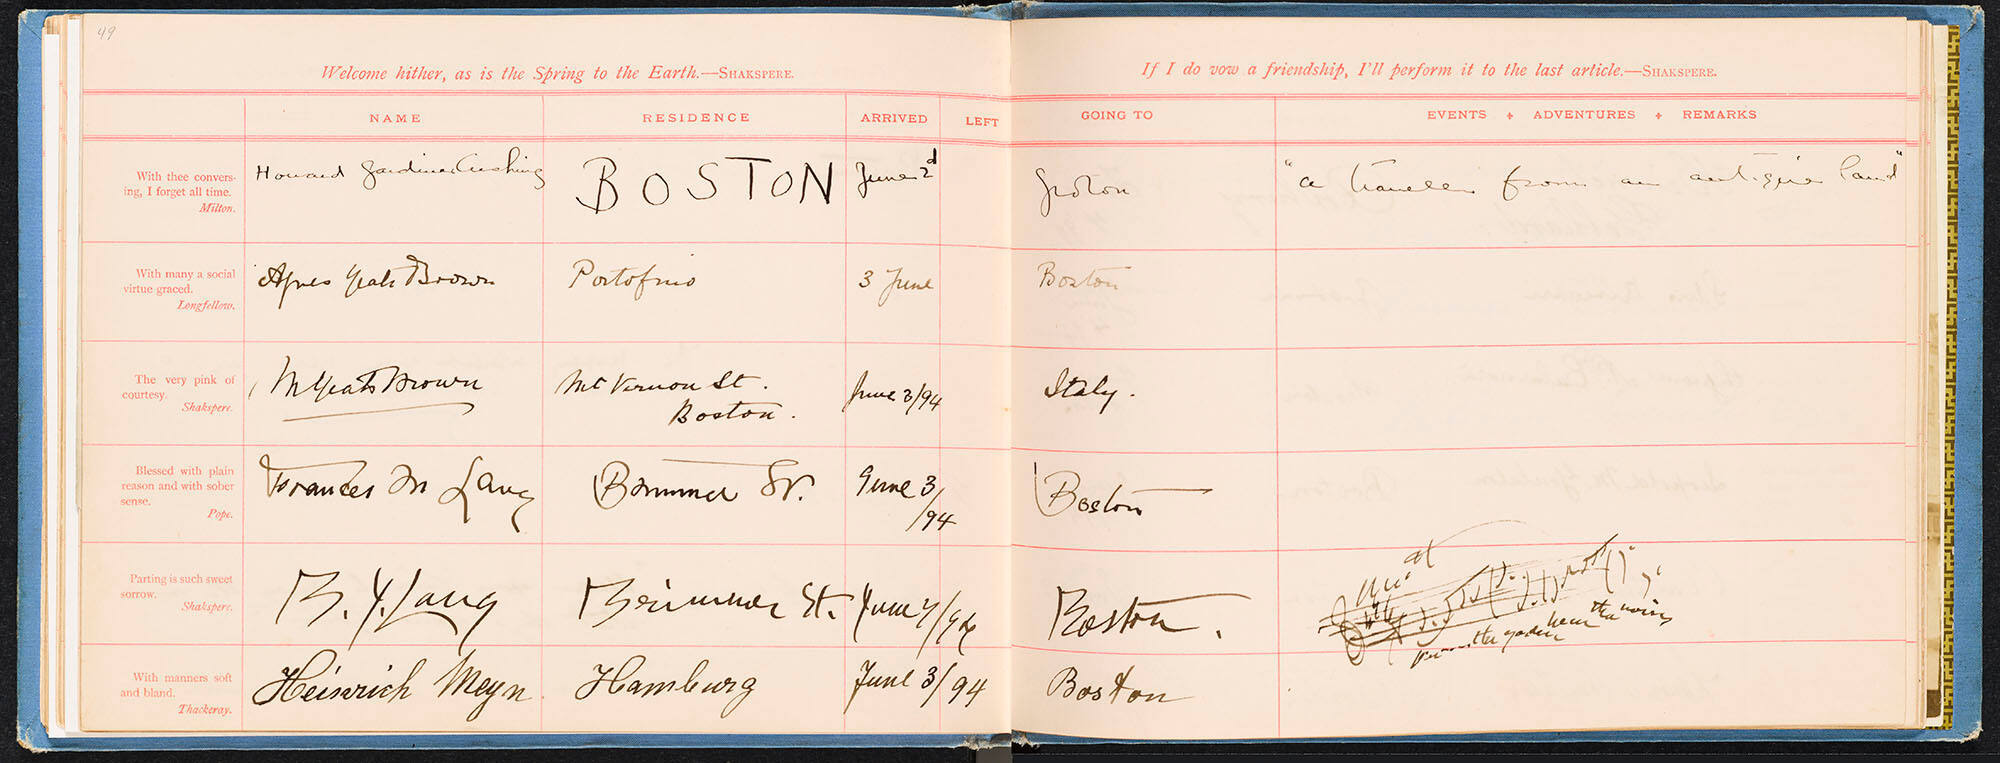 49
Welcome hither, as is the Spring to the Earth.—SHAKSPERE.
If I do vow a friendship, I'll perform it to the last article.—SHAKSPERE.
NAME RESIDENCE ARRIVED LEFT GOING TO EVENTS + ADVENTURES + REMARKS
With thee convers-
ing, I forget all time.
Milton.
Howard Gardiner Cushing BOSTON June 2d Groton "a traveller from an antique land"
With many a social
virtue graced.
Longfellow.
Agnes Yeats Brown Portofino 3 June Boston
The very pink of
courtesy.
Shakspere.
M Yeats Brown Mt Vernon St.
Boston.
June 3/94 Italy.
Blessed with plain
reason and with sober
sense.
Pope.
Frances M Lang Brimmer St. June 3/94 Boston
Parting is such sweet
sorrow.
Shakspere.
B. J. Lang Brimmer St. June /94 Boston.
the garden hear the
With manners soft
and bland.
Thackeray.
Heinrich Meyn Hamburg June 3/94 Boston